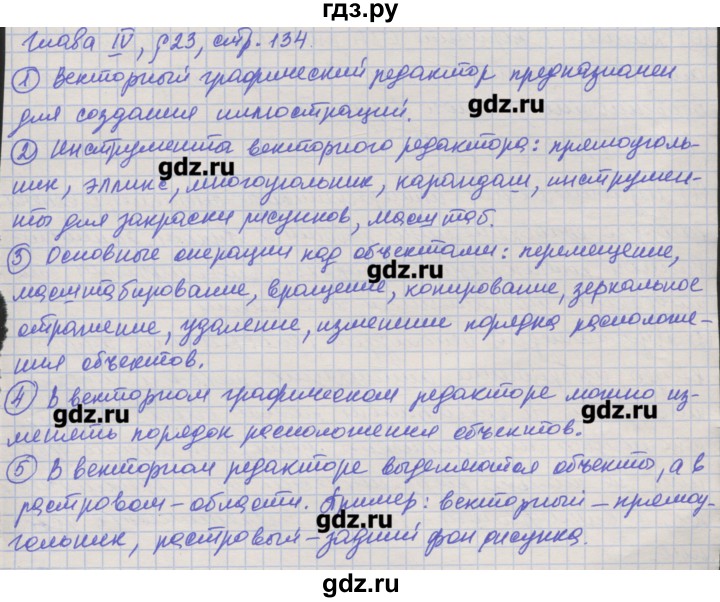 гдз.ру
Глава IV, §23, стр. 134.
① Векторный графический редактор предназначен
для создания иллюстраций.
gdz.ru
② Инструменты векторного редактора: прямоуголь-
gdz.ru
ник, эллипс, многоугольник, карандаш, инструмен-
ты для закраски рисунков, масштаб.
③ Основные операции над объектами: перемещение,
gdz.ru
масштабирование, вращение, копирование, зеркальное
отражение, удаление, изменение порядка расположе-
ния объектов.
④ В векторном графическом редакторе можно из-
gdz.ru gdz.ru
менять порядок расположения объектов.
⑤ В векторном редакторе выделяются объекты, а в
растровом – области. Пример: векторный – прямоу-
gdz.ru
гольник, растровый – задний фон рисунка.
gdz.ru